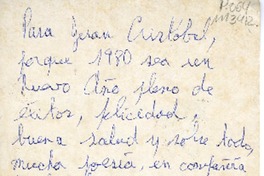 Para Juan Cristóbal,
porque 1980 sea un
Nuevo Año pleno de
éxitos, felicidad,
buena salud y sobre todo,
mucha poesía, en compañía